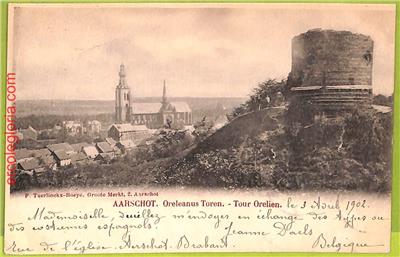 ercolegloria
F. Tuerlinckx-Boeyé, Groote Merkt, 2. Aarschot
AARSCHOT. Oreleanus Toren. - Tour Orelien.
le 3 1902.
Mademoiselle veuillez m'envoyer en échange des types ou
des costumes espagnols Jeanne Paels
Rue de l'église, Aerschot, Brabant, Belgique